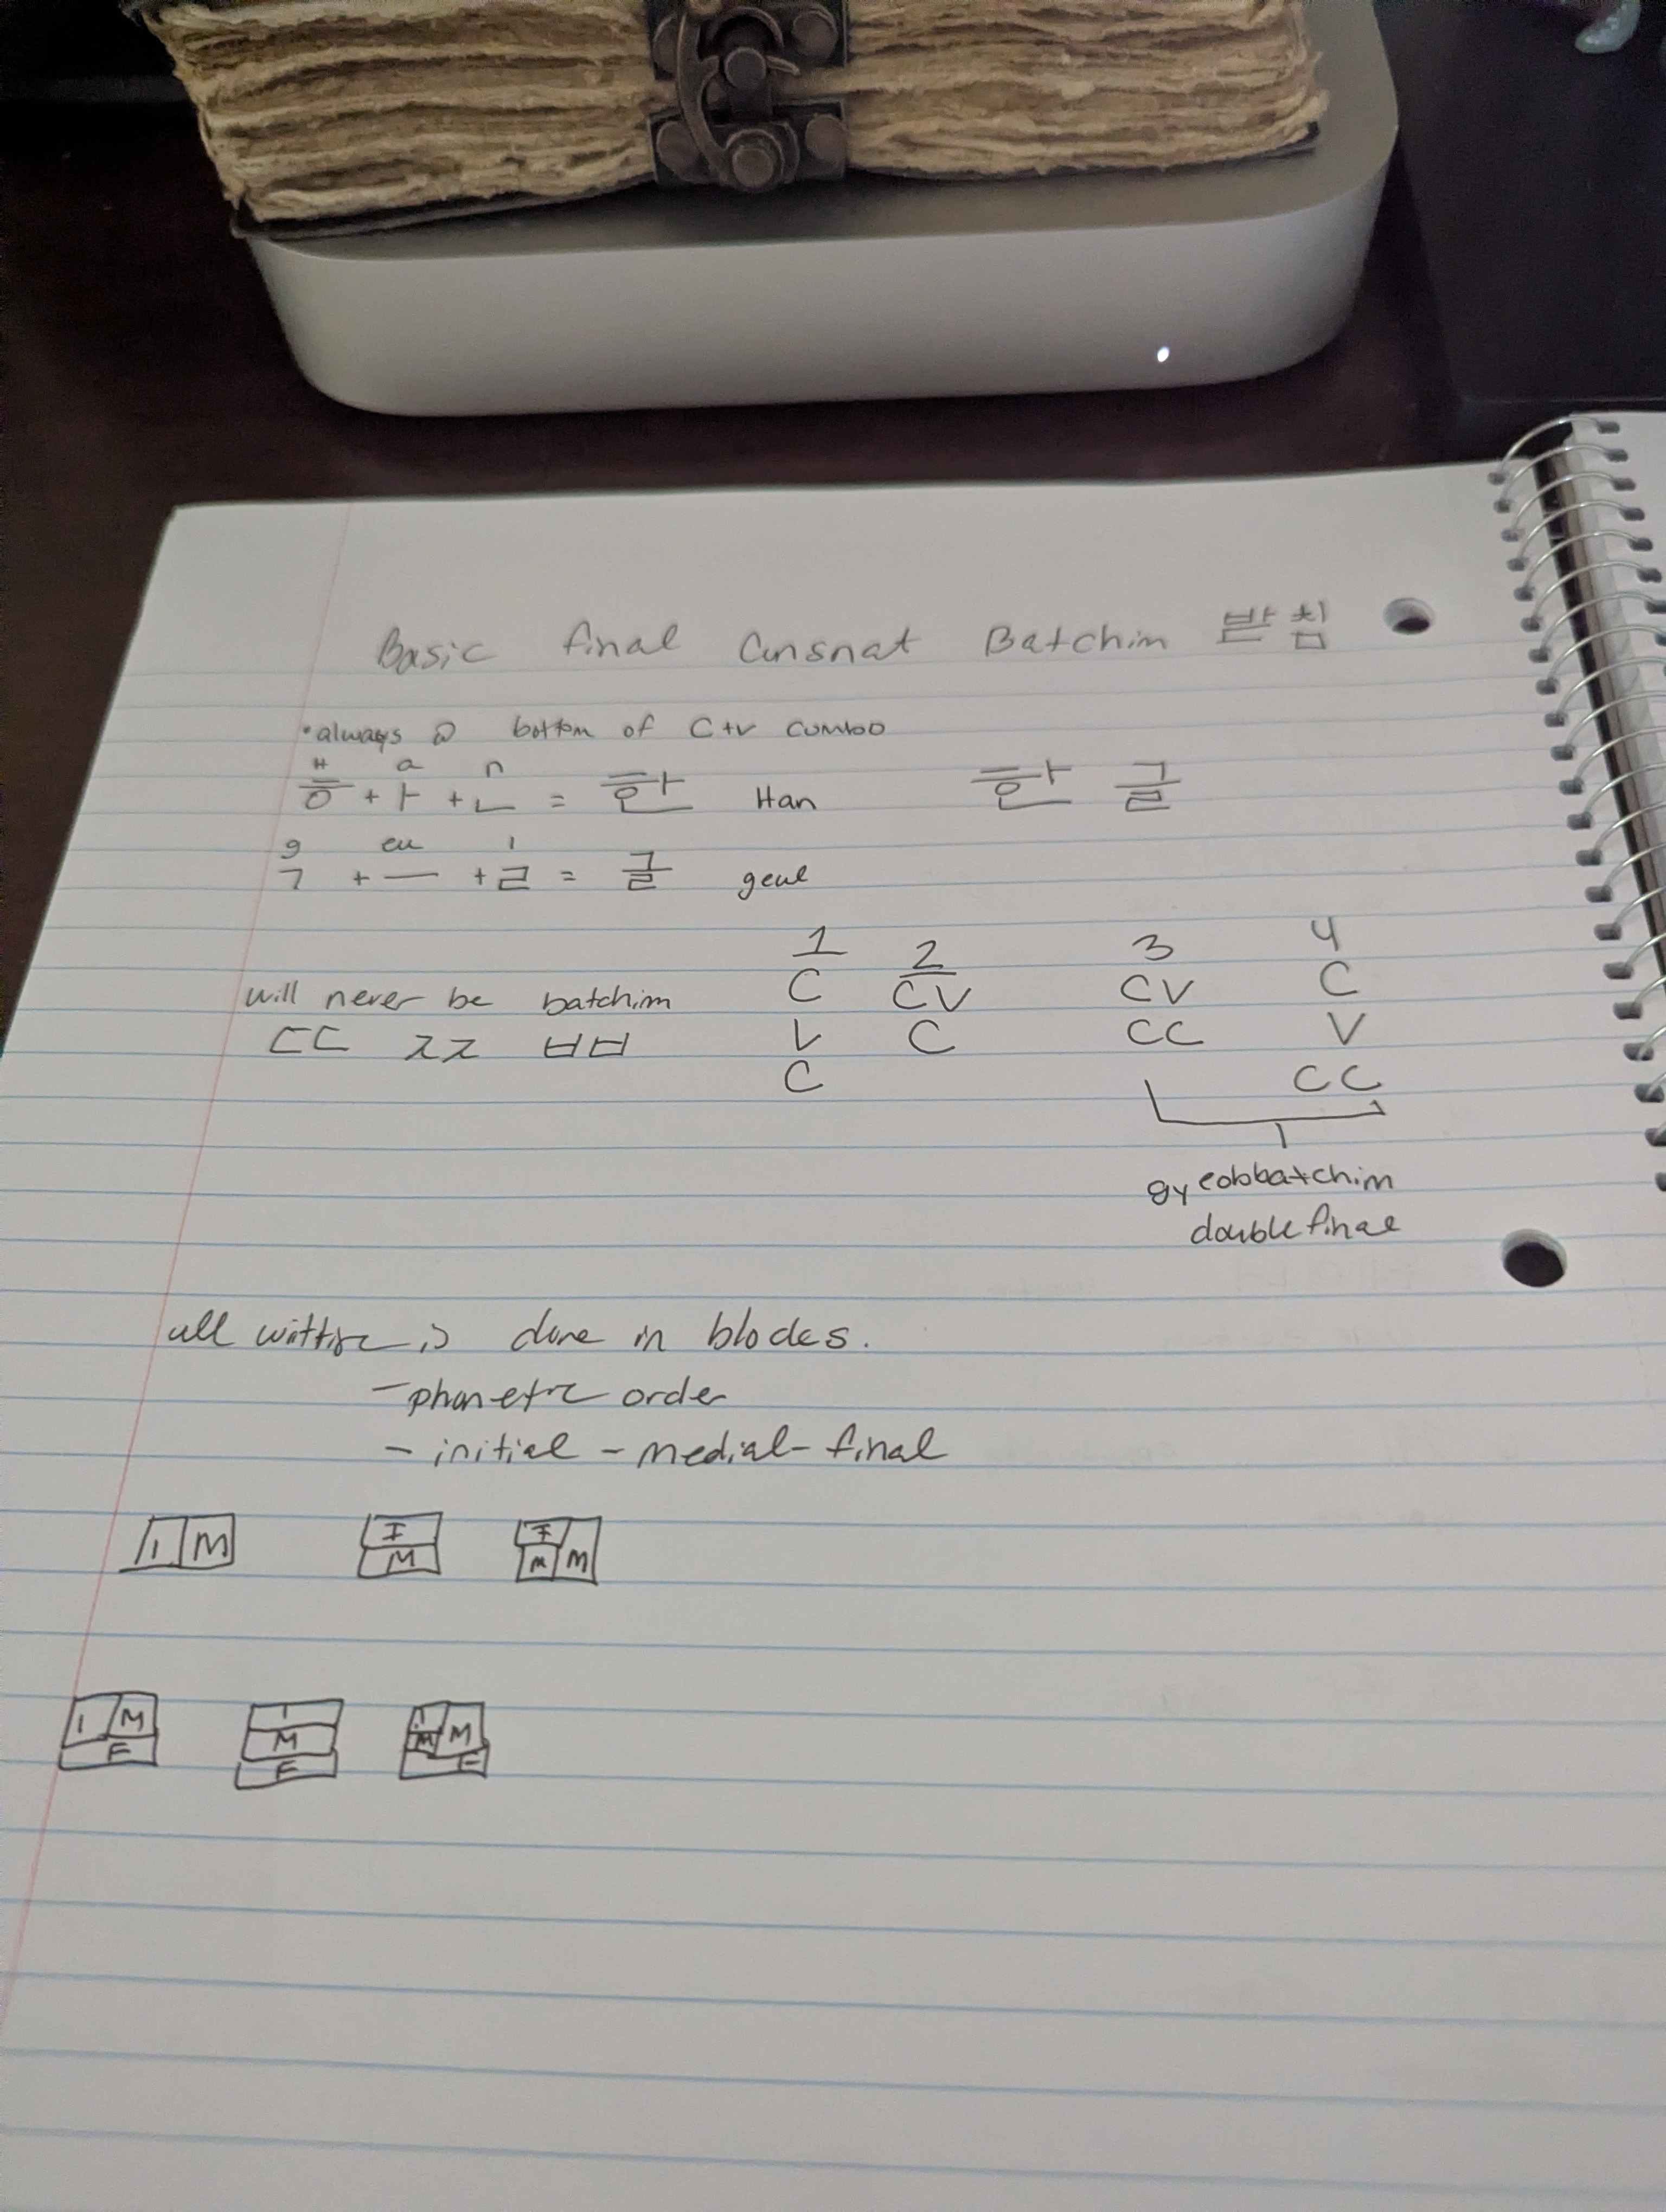 Basic final Cunsnat Batchim 받침
•always @ bottom of C+V combo
H a n
ㅎ + ㅏ + ㄴ = 한 Han 한글
g eu l
ㄱ + ㅡ + ㄹ = 글 geul
1 2 3 4
will never be batchim C CV CV C
ㄷㄷ ㅈㅈ ㅂㅂ V C CC V
C CC
gyeobbatchim
double final
all is done in blocks.
- phonetic order
- initial - medial - final
I M I M I M M
I M F I M F I M M F